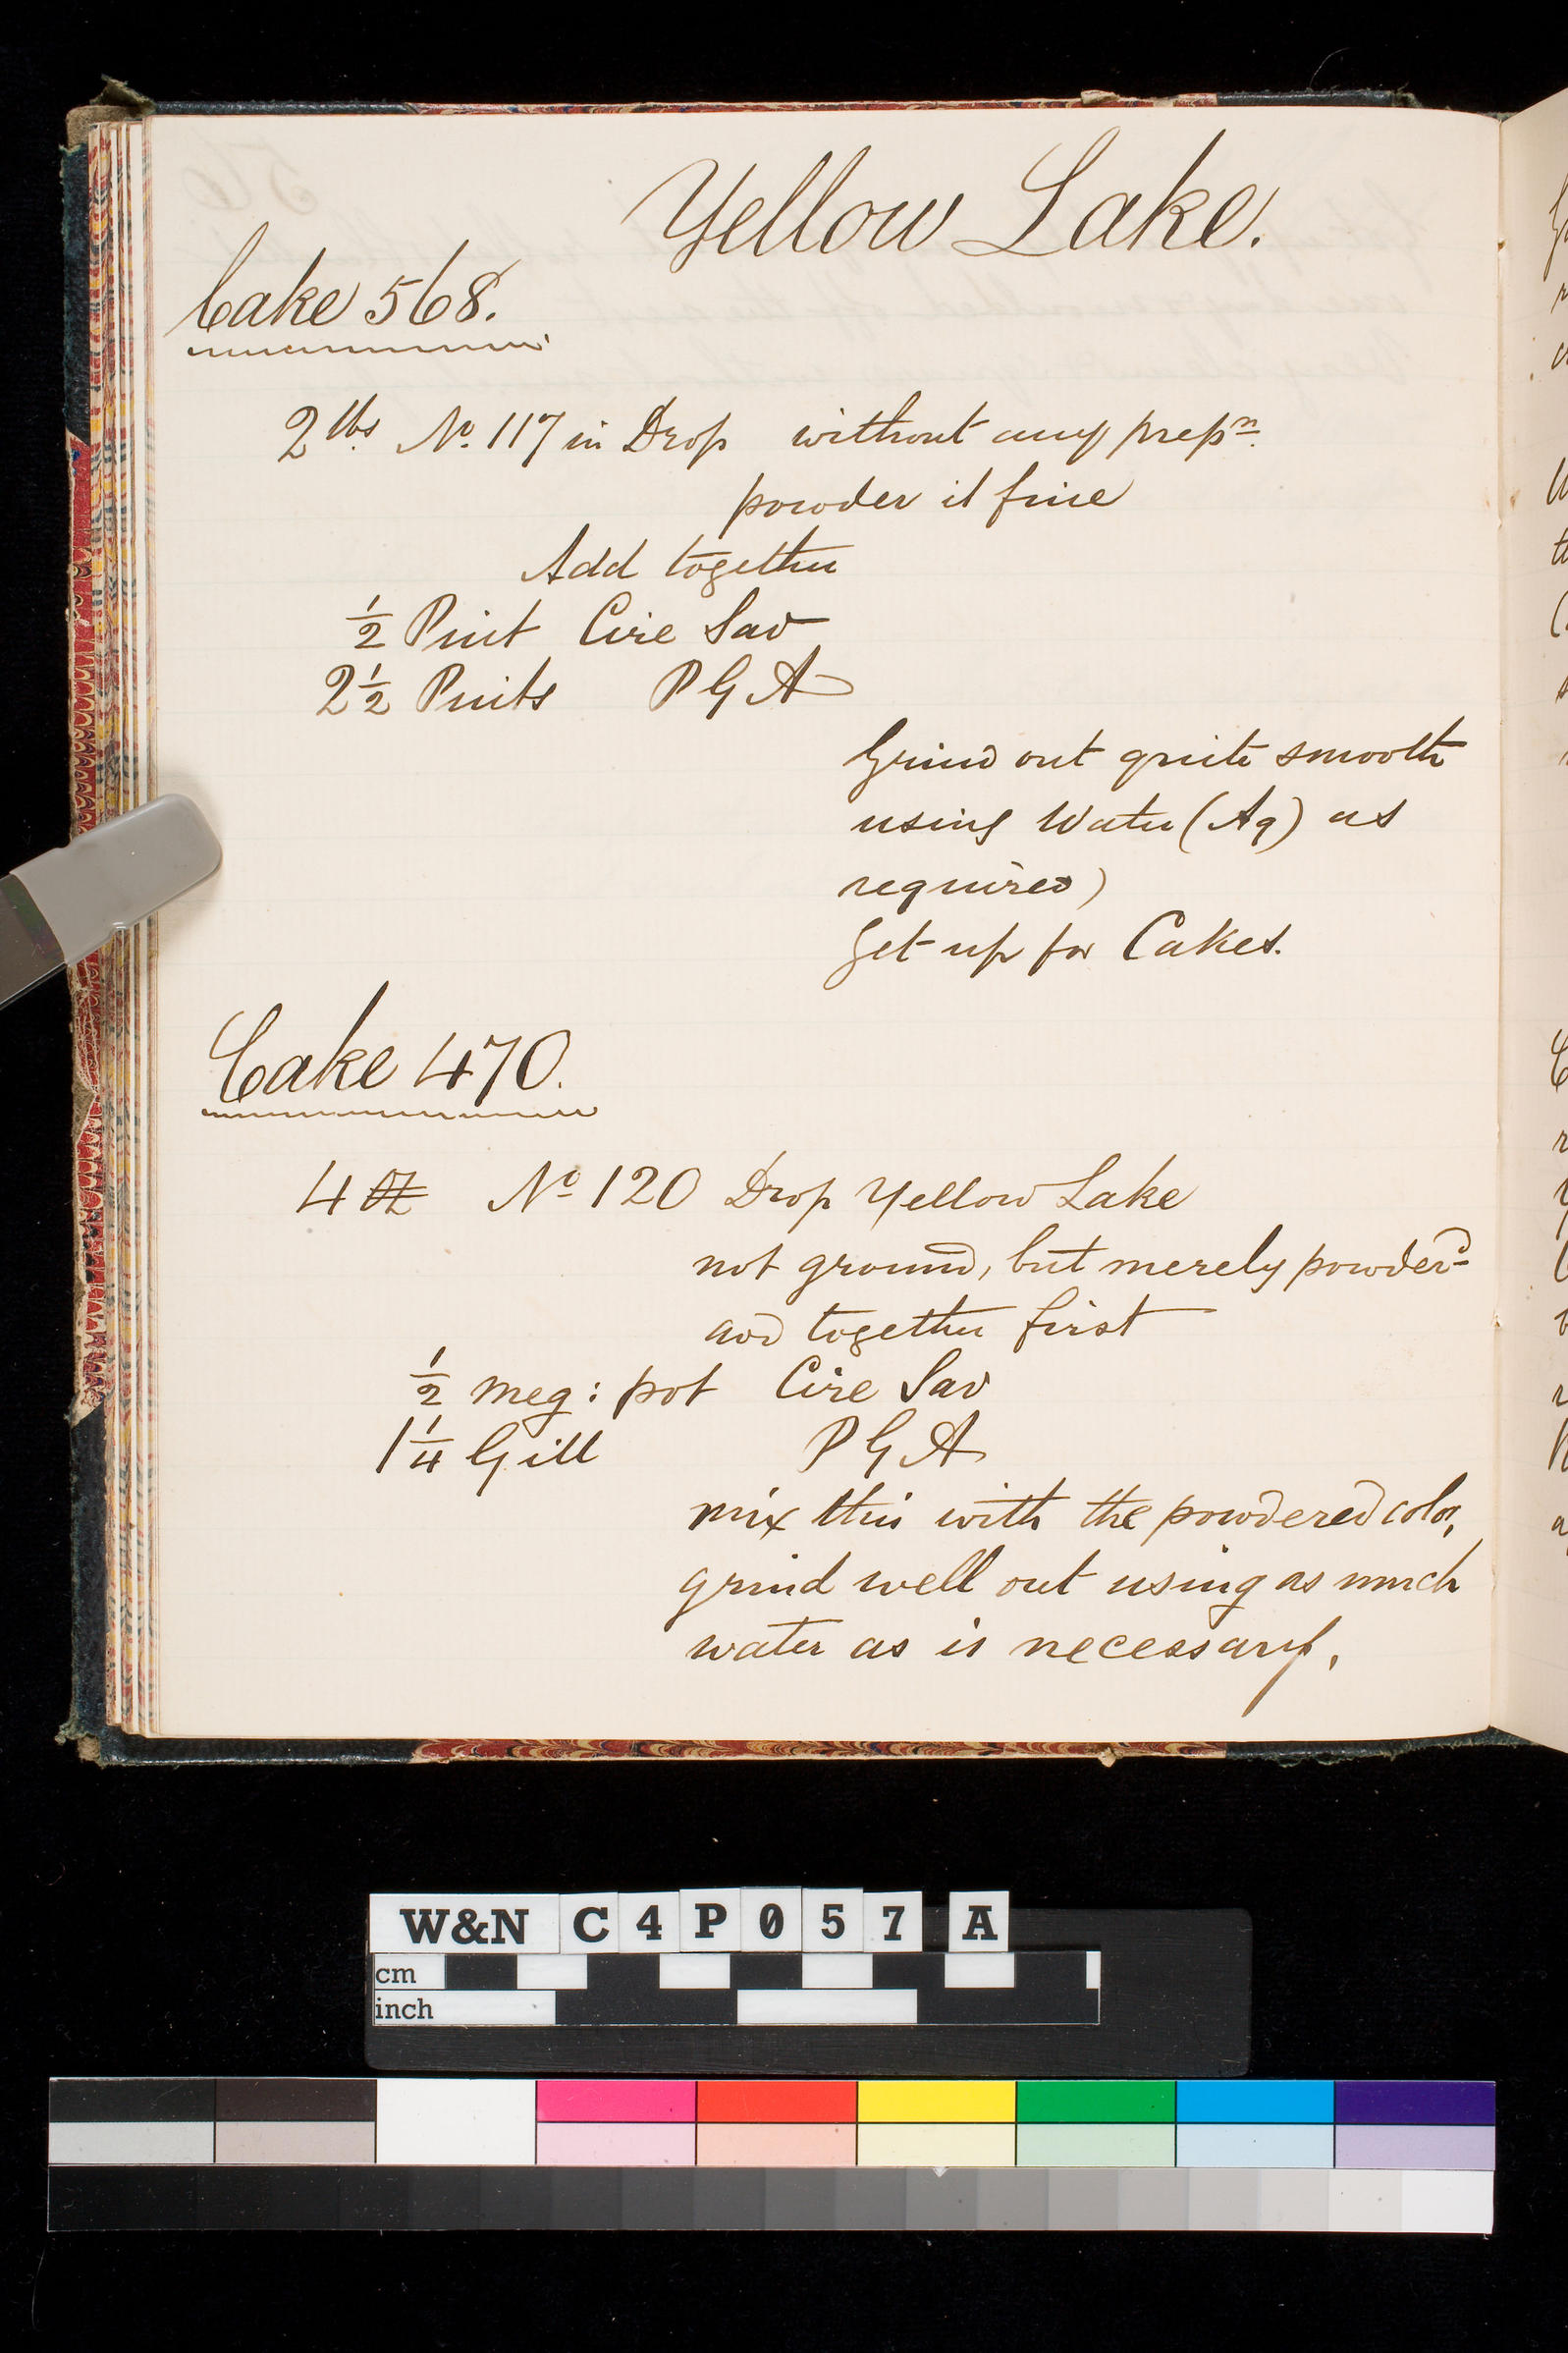 Yellow Lake.
Cake 568.
2 lbs. No. 117 in Drop without any prepn.
powder it fine
Add together
1/2 Pint Cire Sav
2 1/2 Pints P G A
Grind out quite smooth
using Water (Aq) as
required)
Get up for Cakes.
Cake 470.
4 oz No 120 Drop Yellow Lake
not ground, but merely powderd
add together first
1/2 meg: pot Cire Sav
1 1/4 Gill P G A
mix this with the powdered color,
grind well out using as much
water as is necessary.
W&N C4P057 A
cm
inch